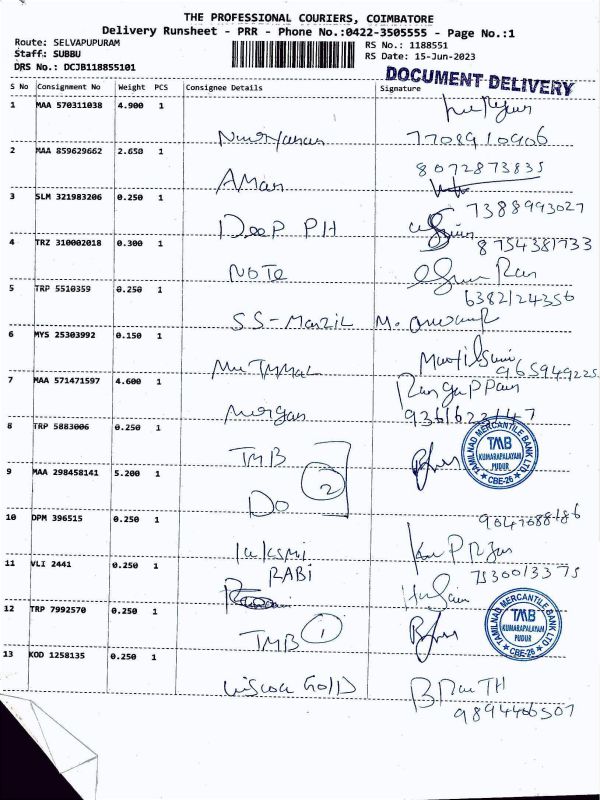 THE PROFESSIONAL COURIERS, COIMBATORE
Delivery Runsheet - PRR - Phone No.:0422-3505555 - Page No.:1
Route: SELVAPUPURAM
Staff: SUBBU
DRS No.: DCJB118855101
RS No.: 1188551
RS Date: 15-Jun-2023
DOCUMENT DELIVERY
S No Consignment No Weight PCS Consignee Details Signature
1 MAA 570311038 4.900 1
7708910906
2 MAA 859629662 2.650 1
AMan
8072873835
3 SLM 321983206 0.250 1
Deep PH
7388993027
4 TRZ 310002018 0.300 1
NOTe
8754381733
5 TRP 5510359 0.250 1
SS-Manzil
6 MYS 25303992 0.150 1
965949225
7 MAA 571471597 4.600 1
Murgan
RangaPPan
8 TRP 5883006 0.250 1
TMB
TAMILNAD MERCANTILE BANK LTD
TMB
KUMARAPALAYAM
PUDUR
CBE-26
9 MAA 298458141 5.200 1
DO
2
10 DPM 396515 0.250 1
11 VLI 2441 0.250 1
RABi
7530013375
12 TRP 7992570 0.250 1
TMB
1
TAMILNAD MERCANTILE BANK LTD
TMB
KUMARAPALAYAM
PUDUR
CBE-26
13 KOD 1258135 0.250 1
Gold
9894406507